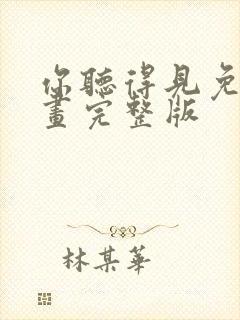 你聽得見免
畫完整版
林某華